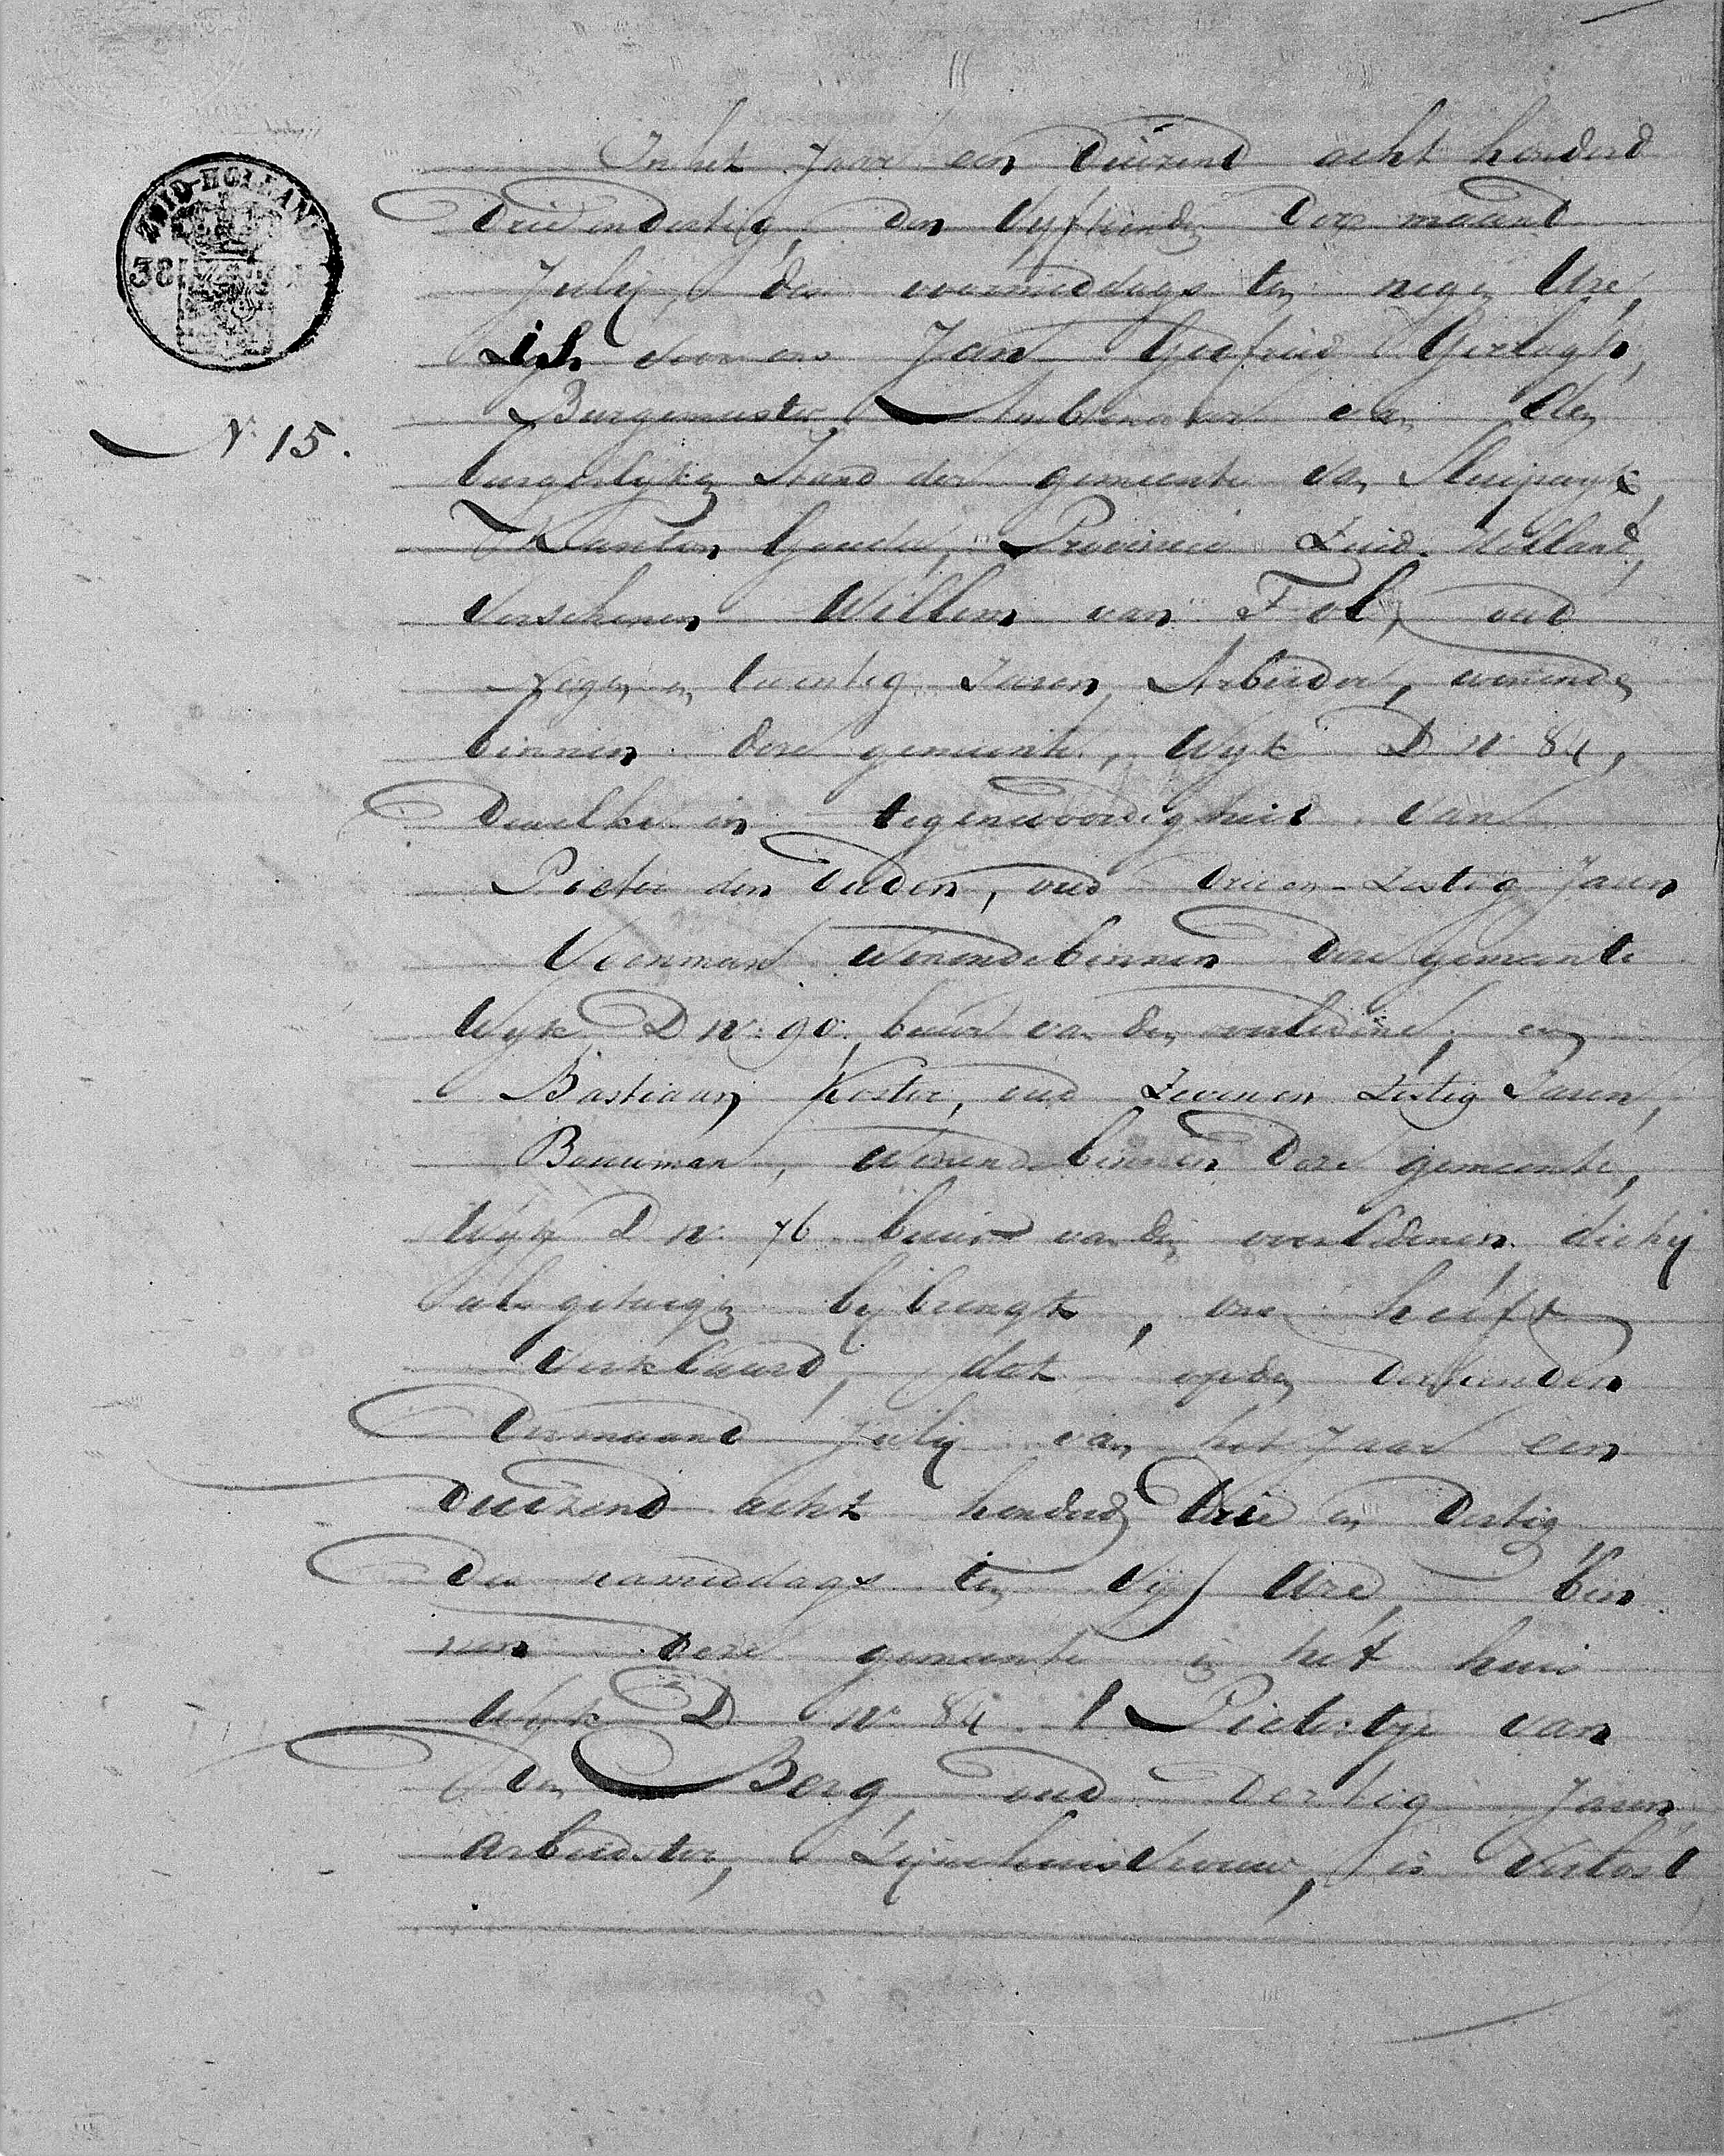 In het Jaar een duizend acht honderd
ZUID-HOLLAND
38
drie en dertig, den vyftienden der maand
July, des voormiddags ten negen Ure,
is voor ons Jan Godfried Gerlagh,
Burgemeester, Ambtenaar van den
N. 15.
burgerlyken Stand der gemeente van Sluipwyk,
Kanton Gouda, Provincie Zuid-Holland,
verschenen Willem van Tol, oud
negen en twintig Jaren, Arbeider, wonende
binnen deze gemeente, Wyk D No 84,
dewelke in tegenwoordigheid van
Pieter den Ouden, oud drie en Zestig Jaren
Veenman wonende binnen deze gemeente
Wyk D No 90, buur van den overledene, en
Bastiaan Koster, oud Zeven en Zestig Jaren,
Bouwman, wonende binnen deze gemeente,
Wyk D No 76 buur van den overledenen die hij
als getuigen bybrengt, ons heeft
verklaard, dat op den dertienden
der maand July van het Jaar een
duizend acht honderd drie en dertig
des namiddags ten vyf Ure, bin
nen deze gemeente in het huis
Wyk D No 84 Pietertje van
den Berg oud dertig Jaren
arbeidster, Zijne huisvrouw, is verlost